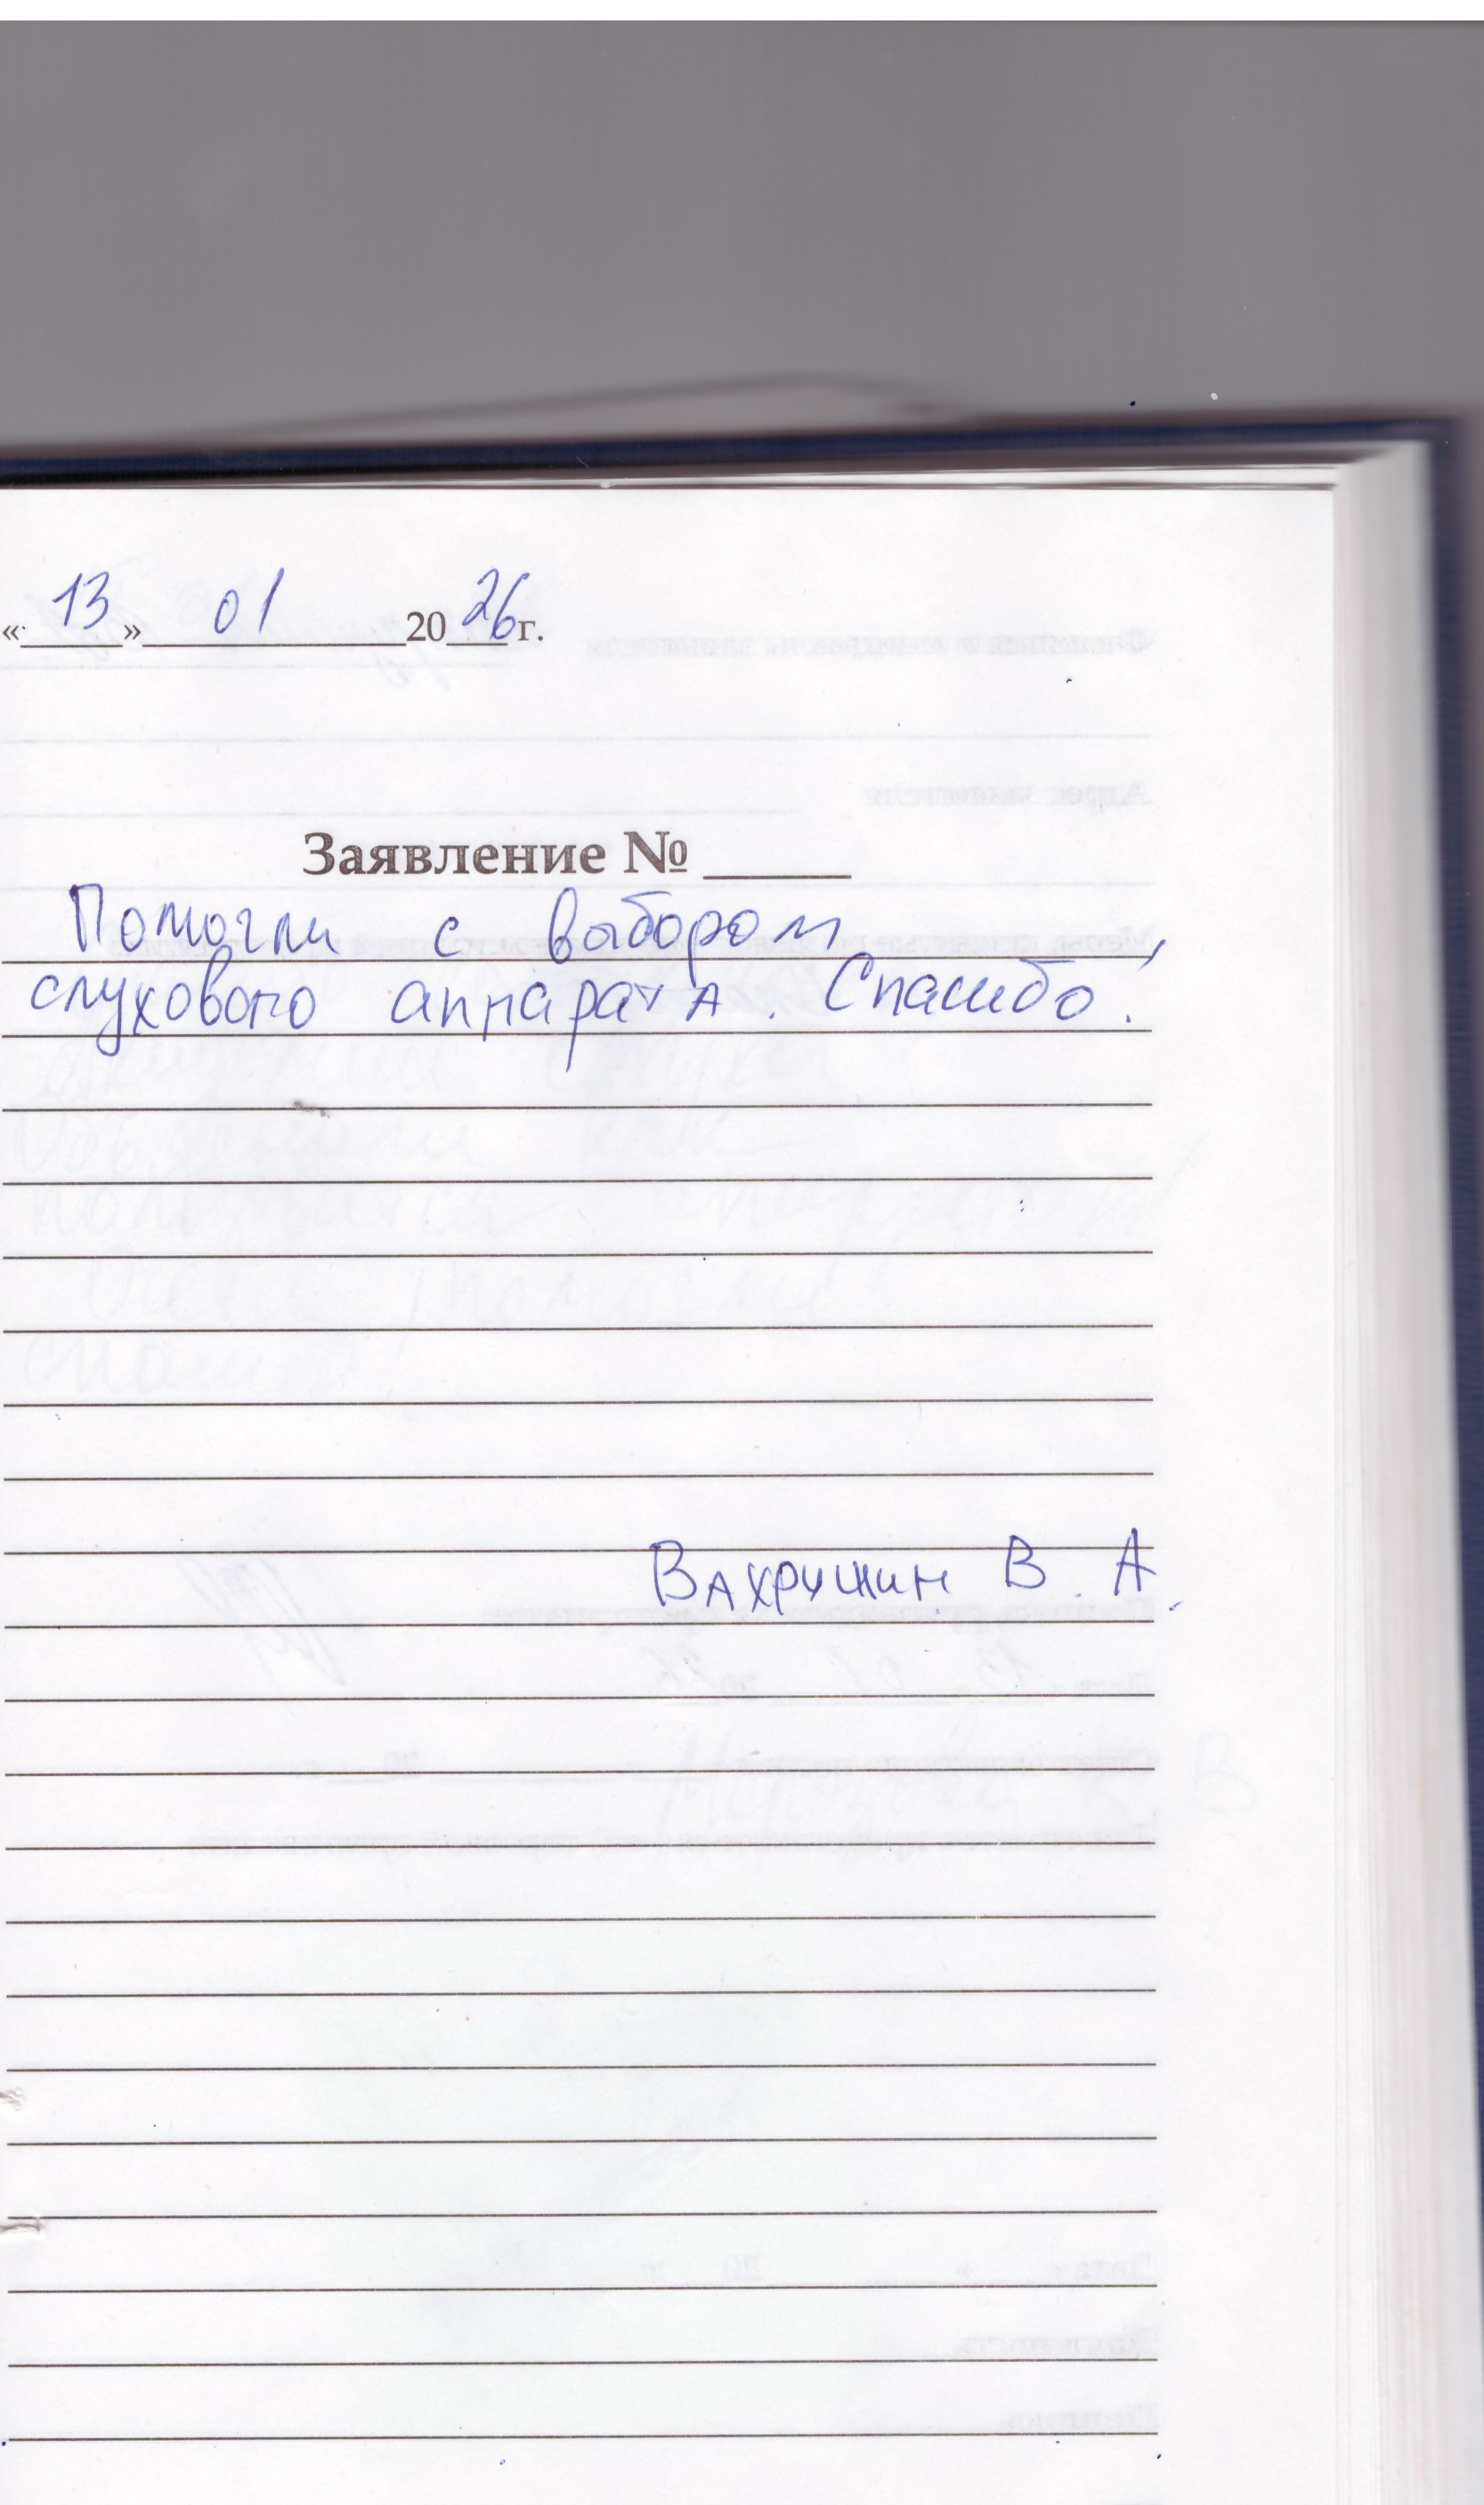 «13» 01 2026 г.
Заявление № ____
Помогли с выбором
слухового аппарата. Спасибо!
Вахрушин В. А.